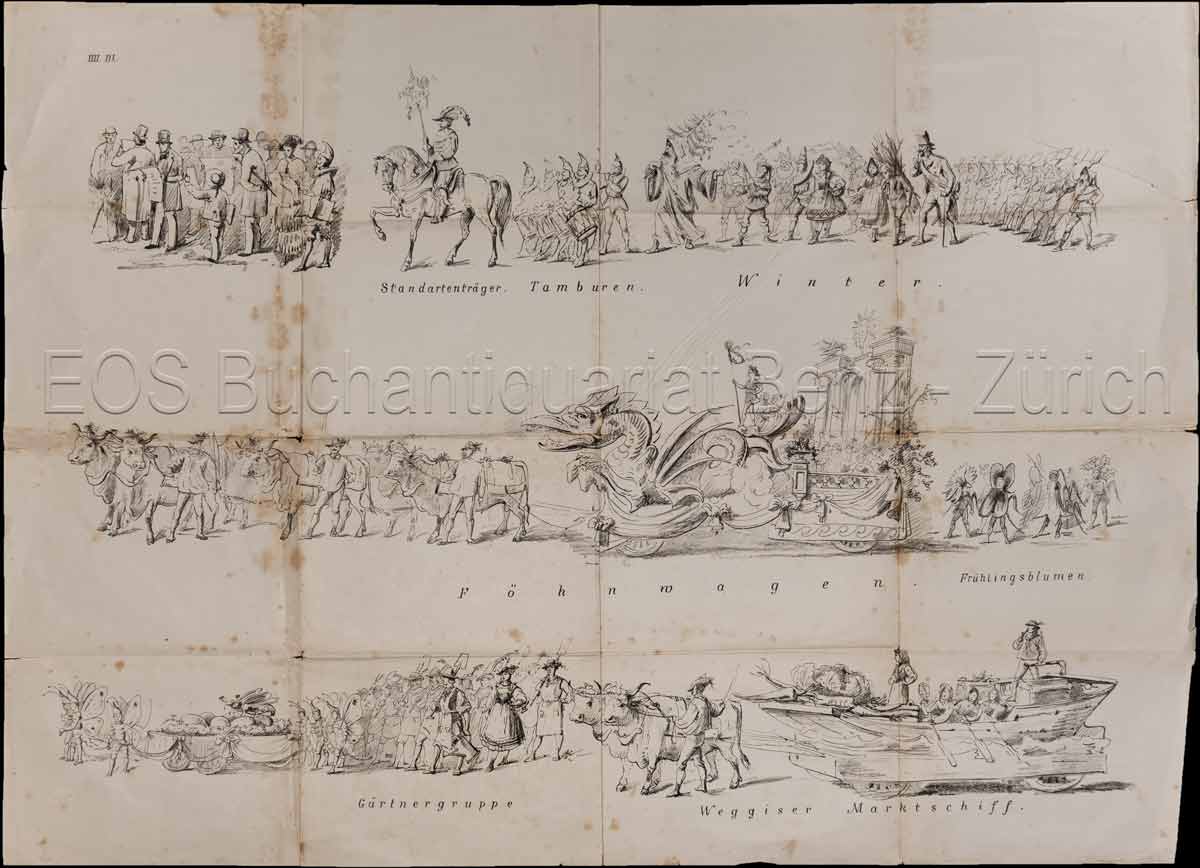 Standartenträger. Tamburen. Winter.
EOS Buchantiquariat Benz - Zürich
Föhnwagen. Frühlingsblumen.
Gärtnergruppe Weggiser Marktschiff.